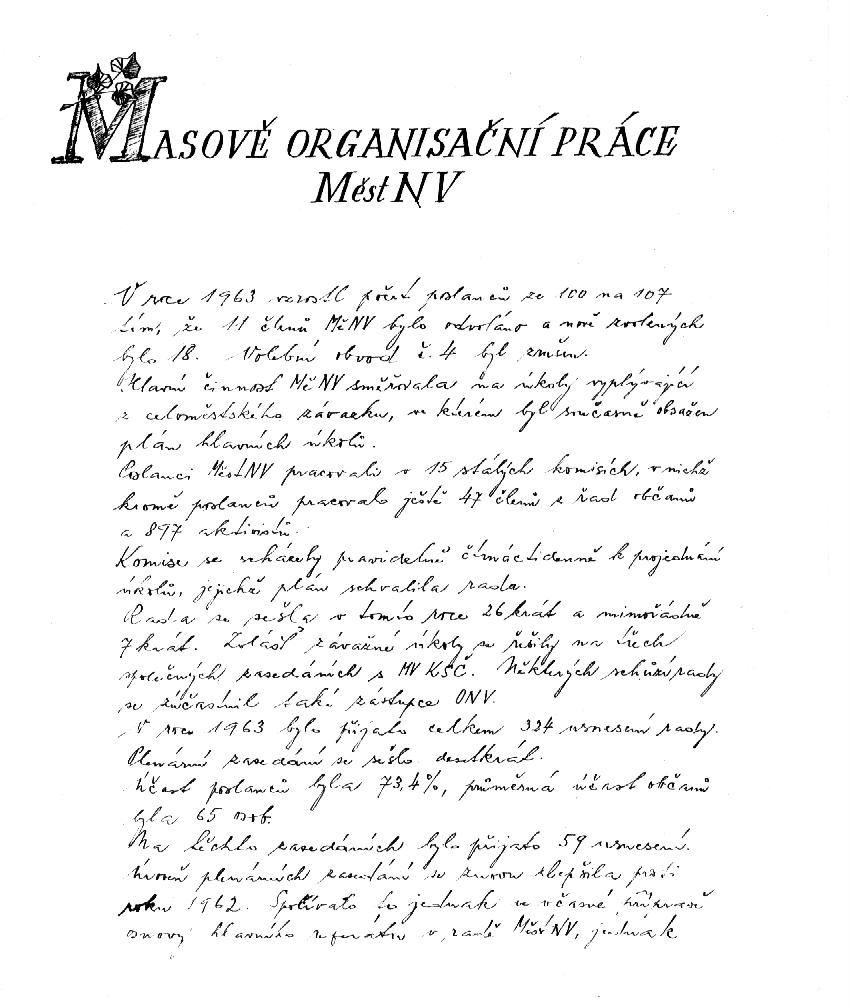 MASOVĚ ORGANISAČNÍ PRÁCE
MěstNV
V roce 1963 vzrostl počet poslanců ze 100 na 107
tím, že 11 členů MěNV bylo odvoláno a nově zvolených
bylo 18. Volební obvod č. 4 byl zrušen.
Hlavní činnost MěNV směřovala na úkoly vyplývající
z celoměstského závazku, ve kterém byl současně obsažen
plán hlavních úkolů.
Poslanci MěstNV pracovali v 15 stálých komisích, v nichž
kromě poslanců pracovalo ještě 47 členů z řad občanů
a 897 aktivistů.
Komise se scházely pravidelně čtrnáctidenně k projednání
úkolů, jejichž plán schvalila rada.
Rada se sešla v tomto roce 26krát a mimořádně
7krát. Zvlášť závažné úkoly se řešily na třech
společných zasedáních s MV KSČ. Některých schůzí rady
se zúčastnil také zástupce ONV.
V roce 1963 bylo přijato celkem 324 usnesení rady.
Plenární zasedání se sešlo desetkrát.
Účast poslanců byla 73,4%, průměrná účast občanů
byla 65 osob.
Na těchto zasedáních bylo přijato 59 usnesení.
Úroveň plenárních zasedání se znovu zlepšila proti
roku 1962. Spočívalo to jednak ve včasné přípravě
osnovy hlavního referátu v radě MěstNV, jednak